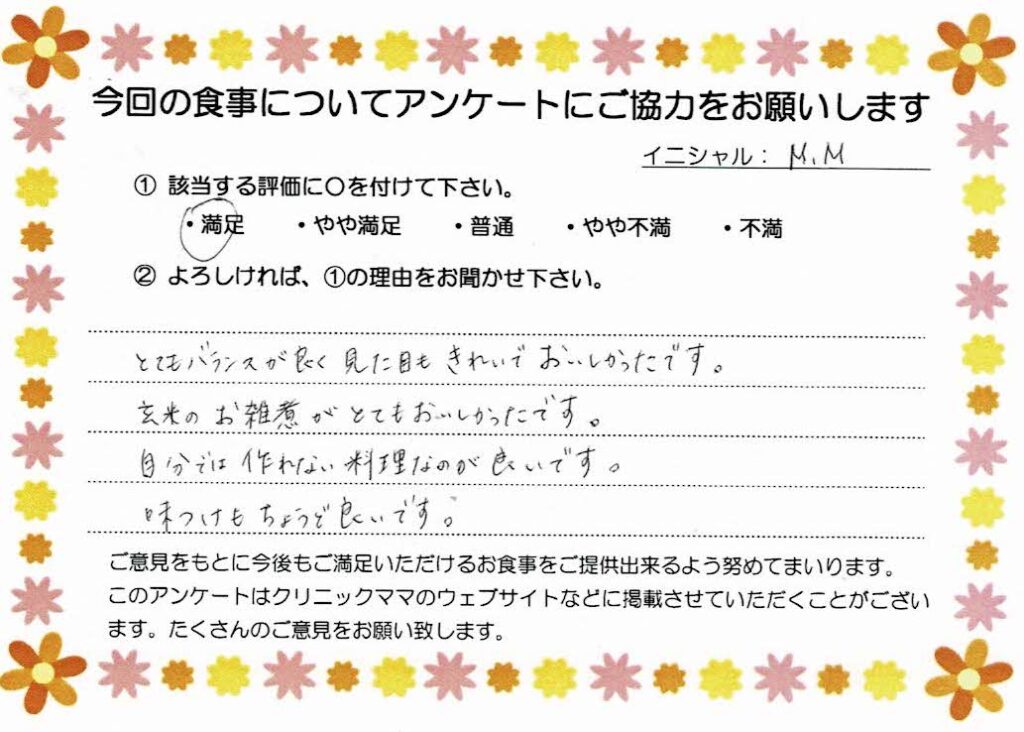 今回の食事についてアンケートにご協力をお願いします
イニシャル： M.M
① 該当する評価に〇を付けて下さい。
・満足 ・やや満足 ・普通 ・やや不満 ・不満
② よろしければ、①の理由をお聞かせ下さい。
とてもバランスが良く 見た目も きれいで おいしかったです。
玄米の お雑煮が とてもおいしかったです。
自分では 作れない 料理なのが 良いです。
味つけも ちょうど良いです。
ご意見をもとに今後もご満足いただけるお食事をご提供出来るよう努めてまいります。
このアンケートはクリニックママのウェブサイトなどに掲載させていただくことがござい
ます。たくさんのご意見をお願い致します。